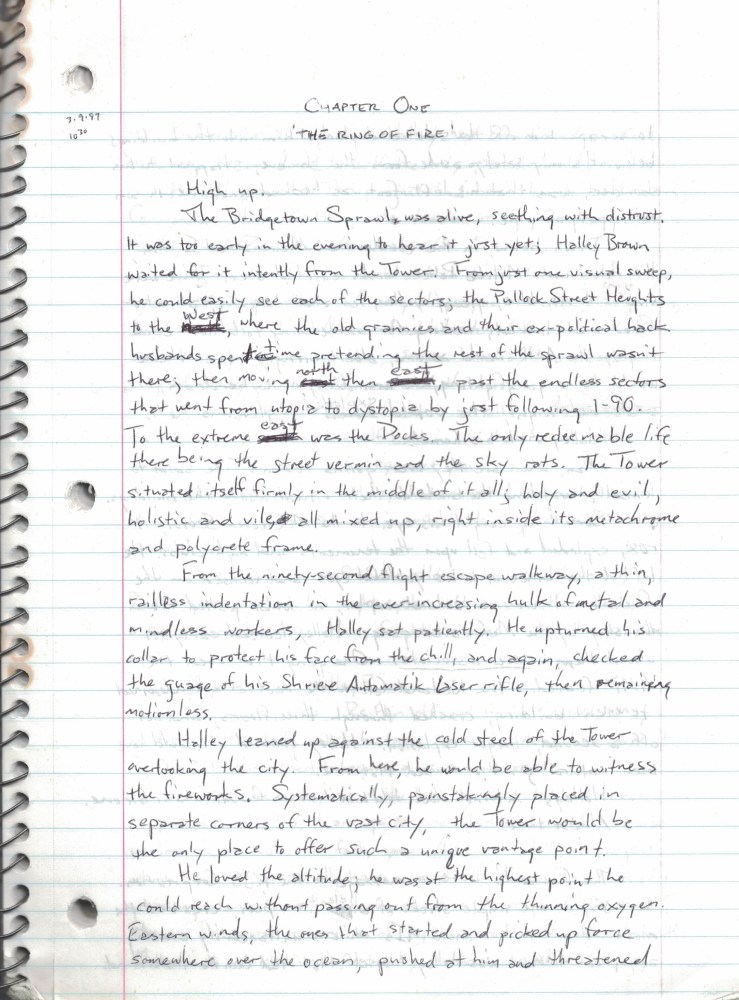 CHAPTER ONE
7.9.97
10³⁰
'THE RING OF FIRE'
High up.
The Bridgetown Sprawl was alive, seething with distrust.
It was too early in the evening to hear it just yet; Halley Brown
waited for it intently from the Tower. From just one visual sweep,
he could easily see each of the sectors; the Pullock Street Heights
to the west, where the old grannies and their ex-political hack
husbands spent time pretending the rest of the sprawl wasn't
there; then moving north then east, past the endless sectors
that went from utopia to dystopia by just following I-90.
To the extreme east was the Docks. The only redeemable life
there being the street vermin and the sky rats. The Tower
situated itself firmly in the middle of it all; holy and evil,
holistic and vile, all mixed up, right inside its metachrome
and polycrete frame.
From the ninety-second flight escape walkway, a thin,
railless indentation in the ever-increasing hulk of metal and
mindless workers, Halley sat patiently. He upturned his
collar to protect his face from the chill, and again, checked
the guage of his Shrieve Attomatik laser rifle, then remaining
motionless.
Halley leaned up against the cold steel of the Tower
overlooking the city. From here, he would be able to witness
the fireworks. Systematically, painstakingly placed in
separate corners of the vast city, the Tower would be
the only place to offer such a unique vantage point.
He loved the altitude; he was at the highest point he
could reach without passing out from the thinning oxygen.
Eastern winds, the ones that started and picked up force
somewhere over the ocean, pushed at him and threatened